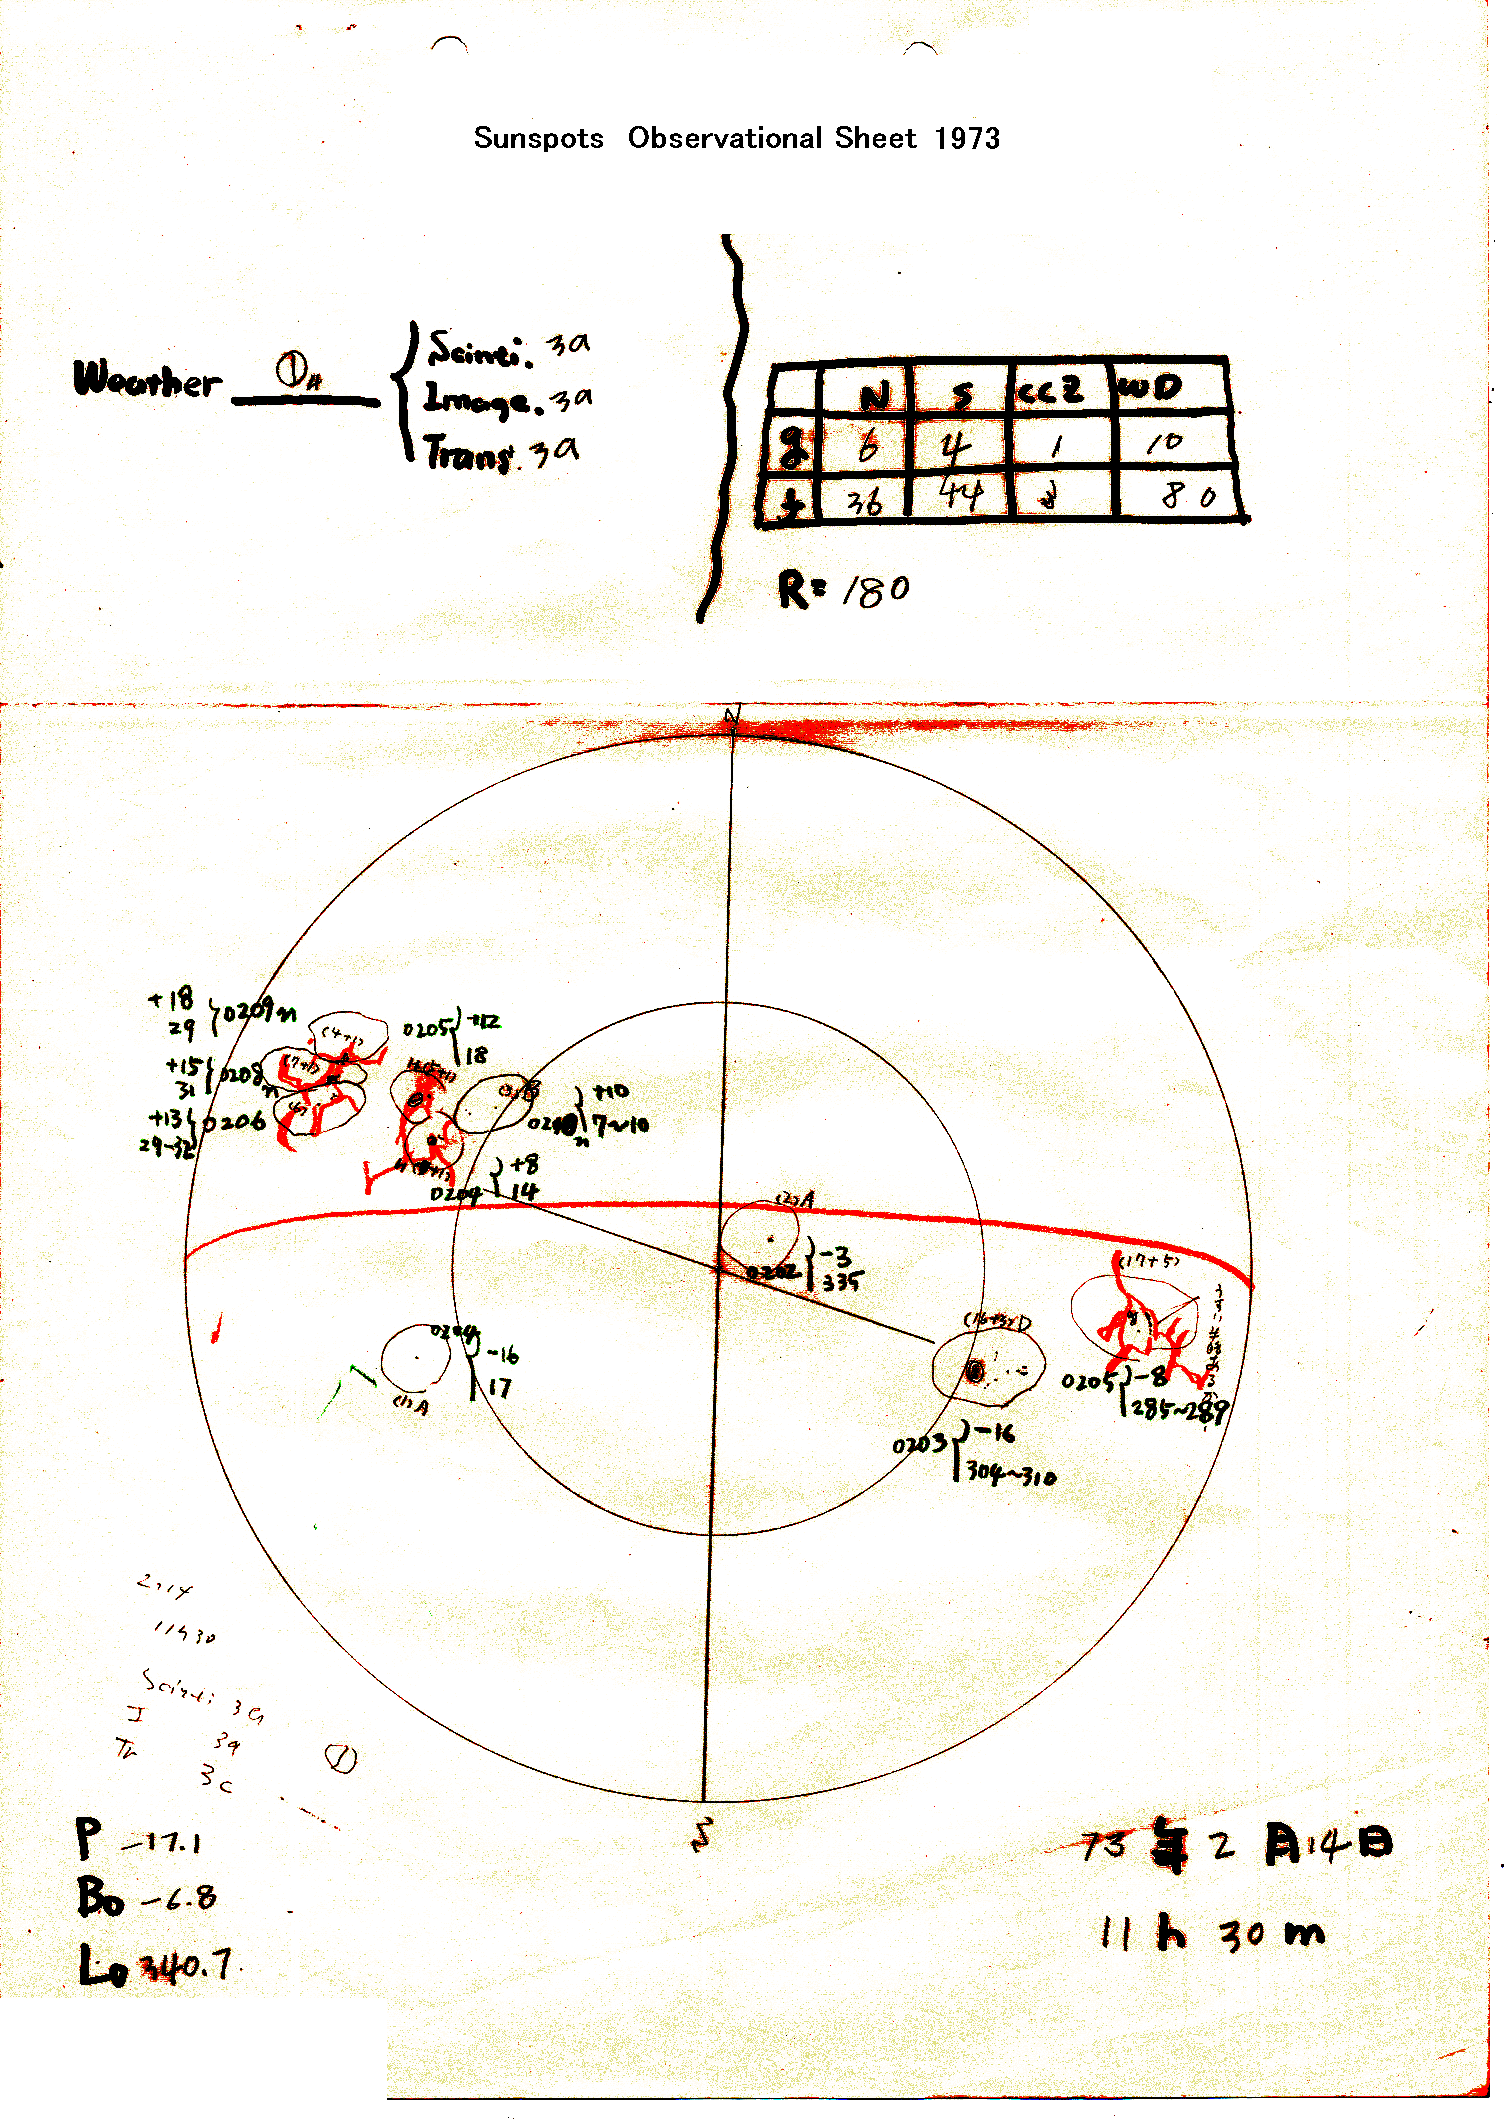 Sunspots Observational Sheet 1973
Weather ①A
Scinti. 3a
Image. 3a
Trans. 3a
N S CCZ WD
g 6 4 1 10
f 36 44 80
R= 180
N
+18
29
0209n
(4+1)
+15
31
0208n
(7+1)
+13
29-32
0206
0205
+12
18
+10
7~10
+8
14
0204
(2)A
0202
-3
335
(17+5)
0205
-8
285~289
0203
-16
304~310
0204
-16
17
(1)A
2,14
11h30
Scinti 3a
I 3a
Tr 3c
①
S
P -17.1
Bo -6.8
Lo 340.7
73年2月14日
11h30m